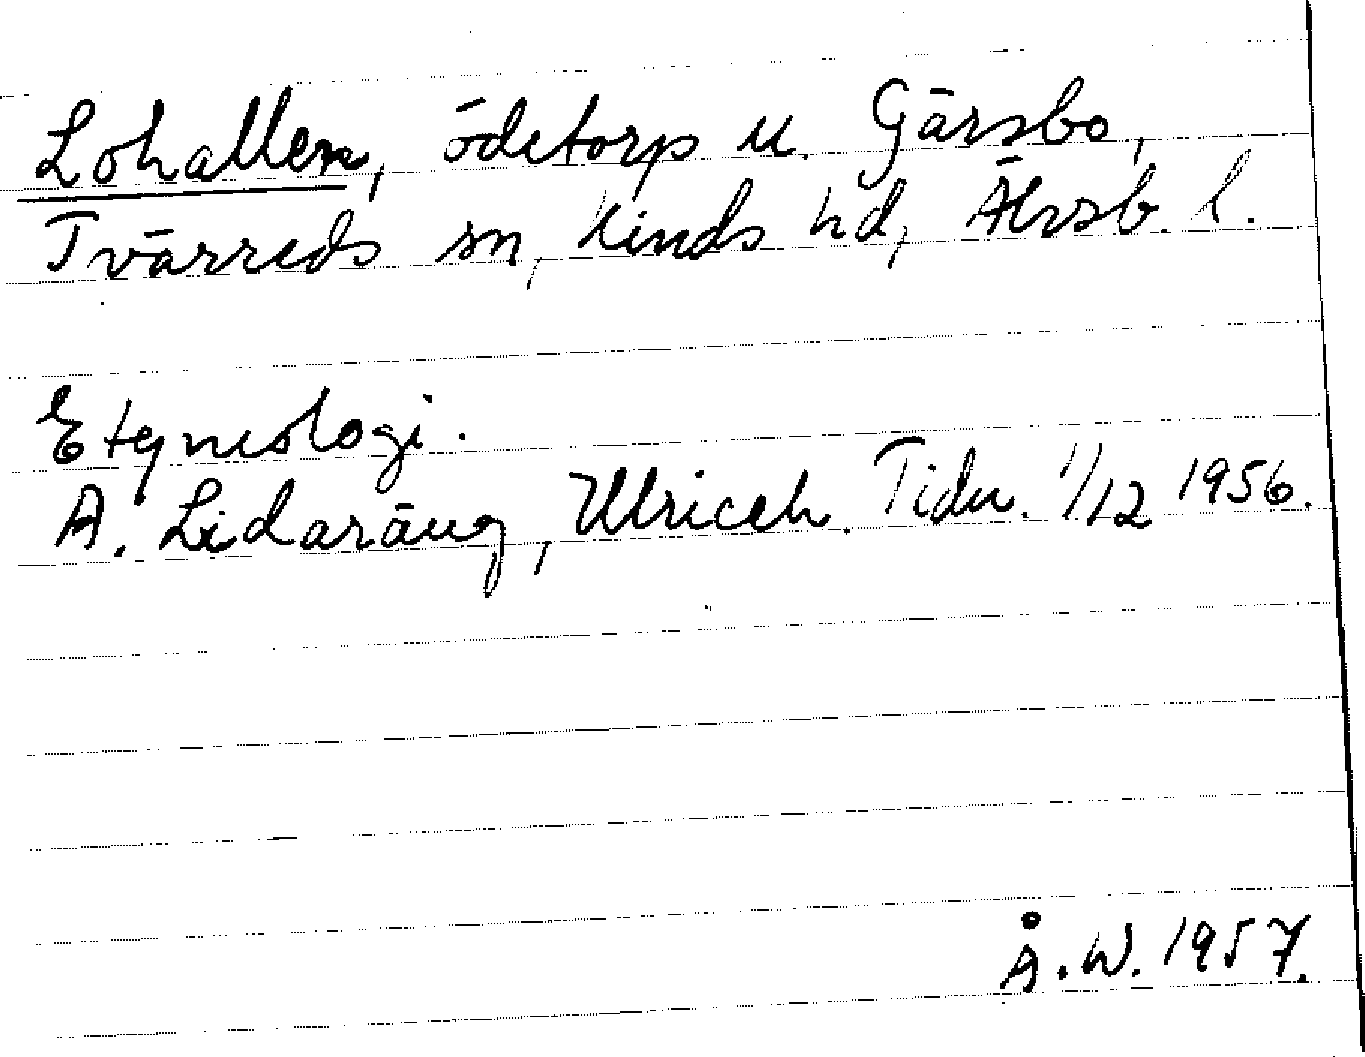 Lohallen, ödetorp u. Gärsbo,
Tvärreds sn, Kinds hd, Älvsb. l.
Etymologi.
A. Lidaräng, Ulriceh. Tidn. 1/12 1956.
Å.W. 1957.